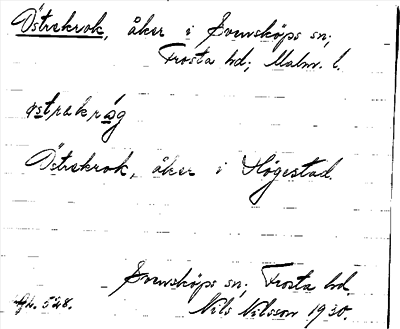 Östrekrok, åker i Svensköps sn;
Frosta hd; Malm. l.
östrakråg
Östrekrok, åker i Högestad.
Svensköps sn; Frosta hd.
Gh. 548. Nils Nilsson 1930.